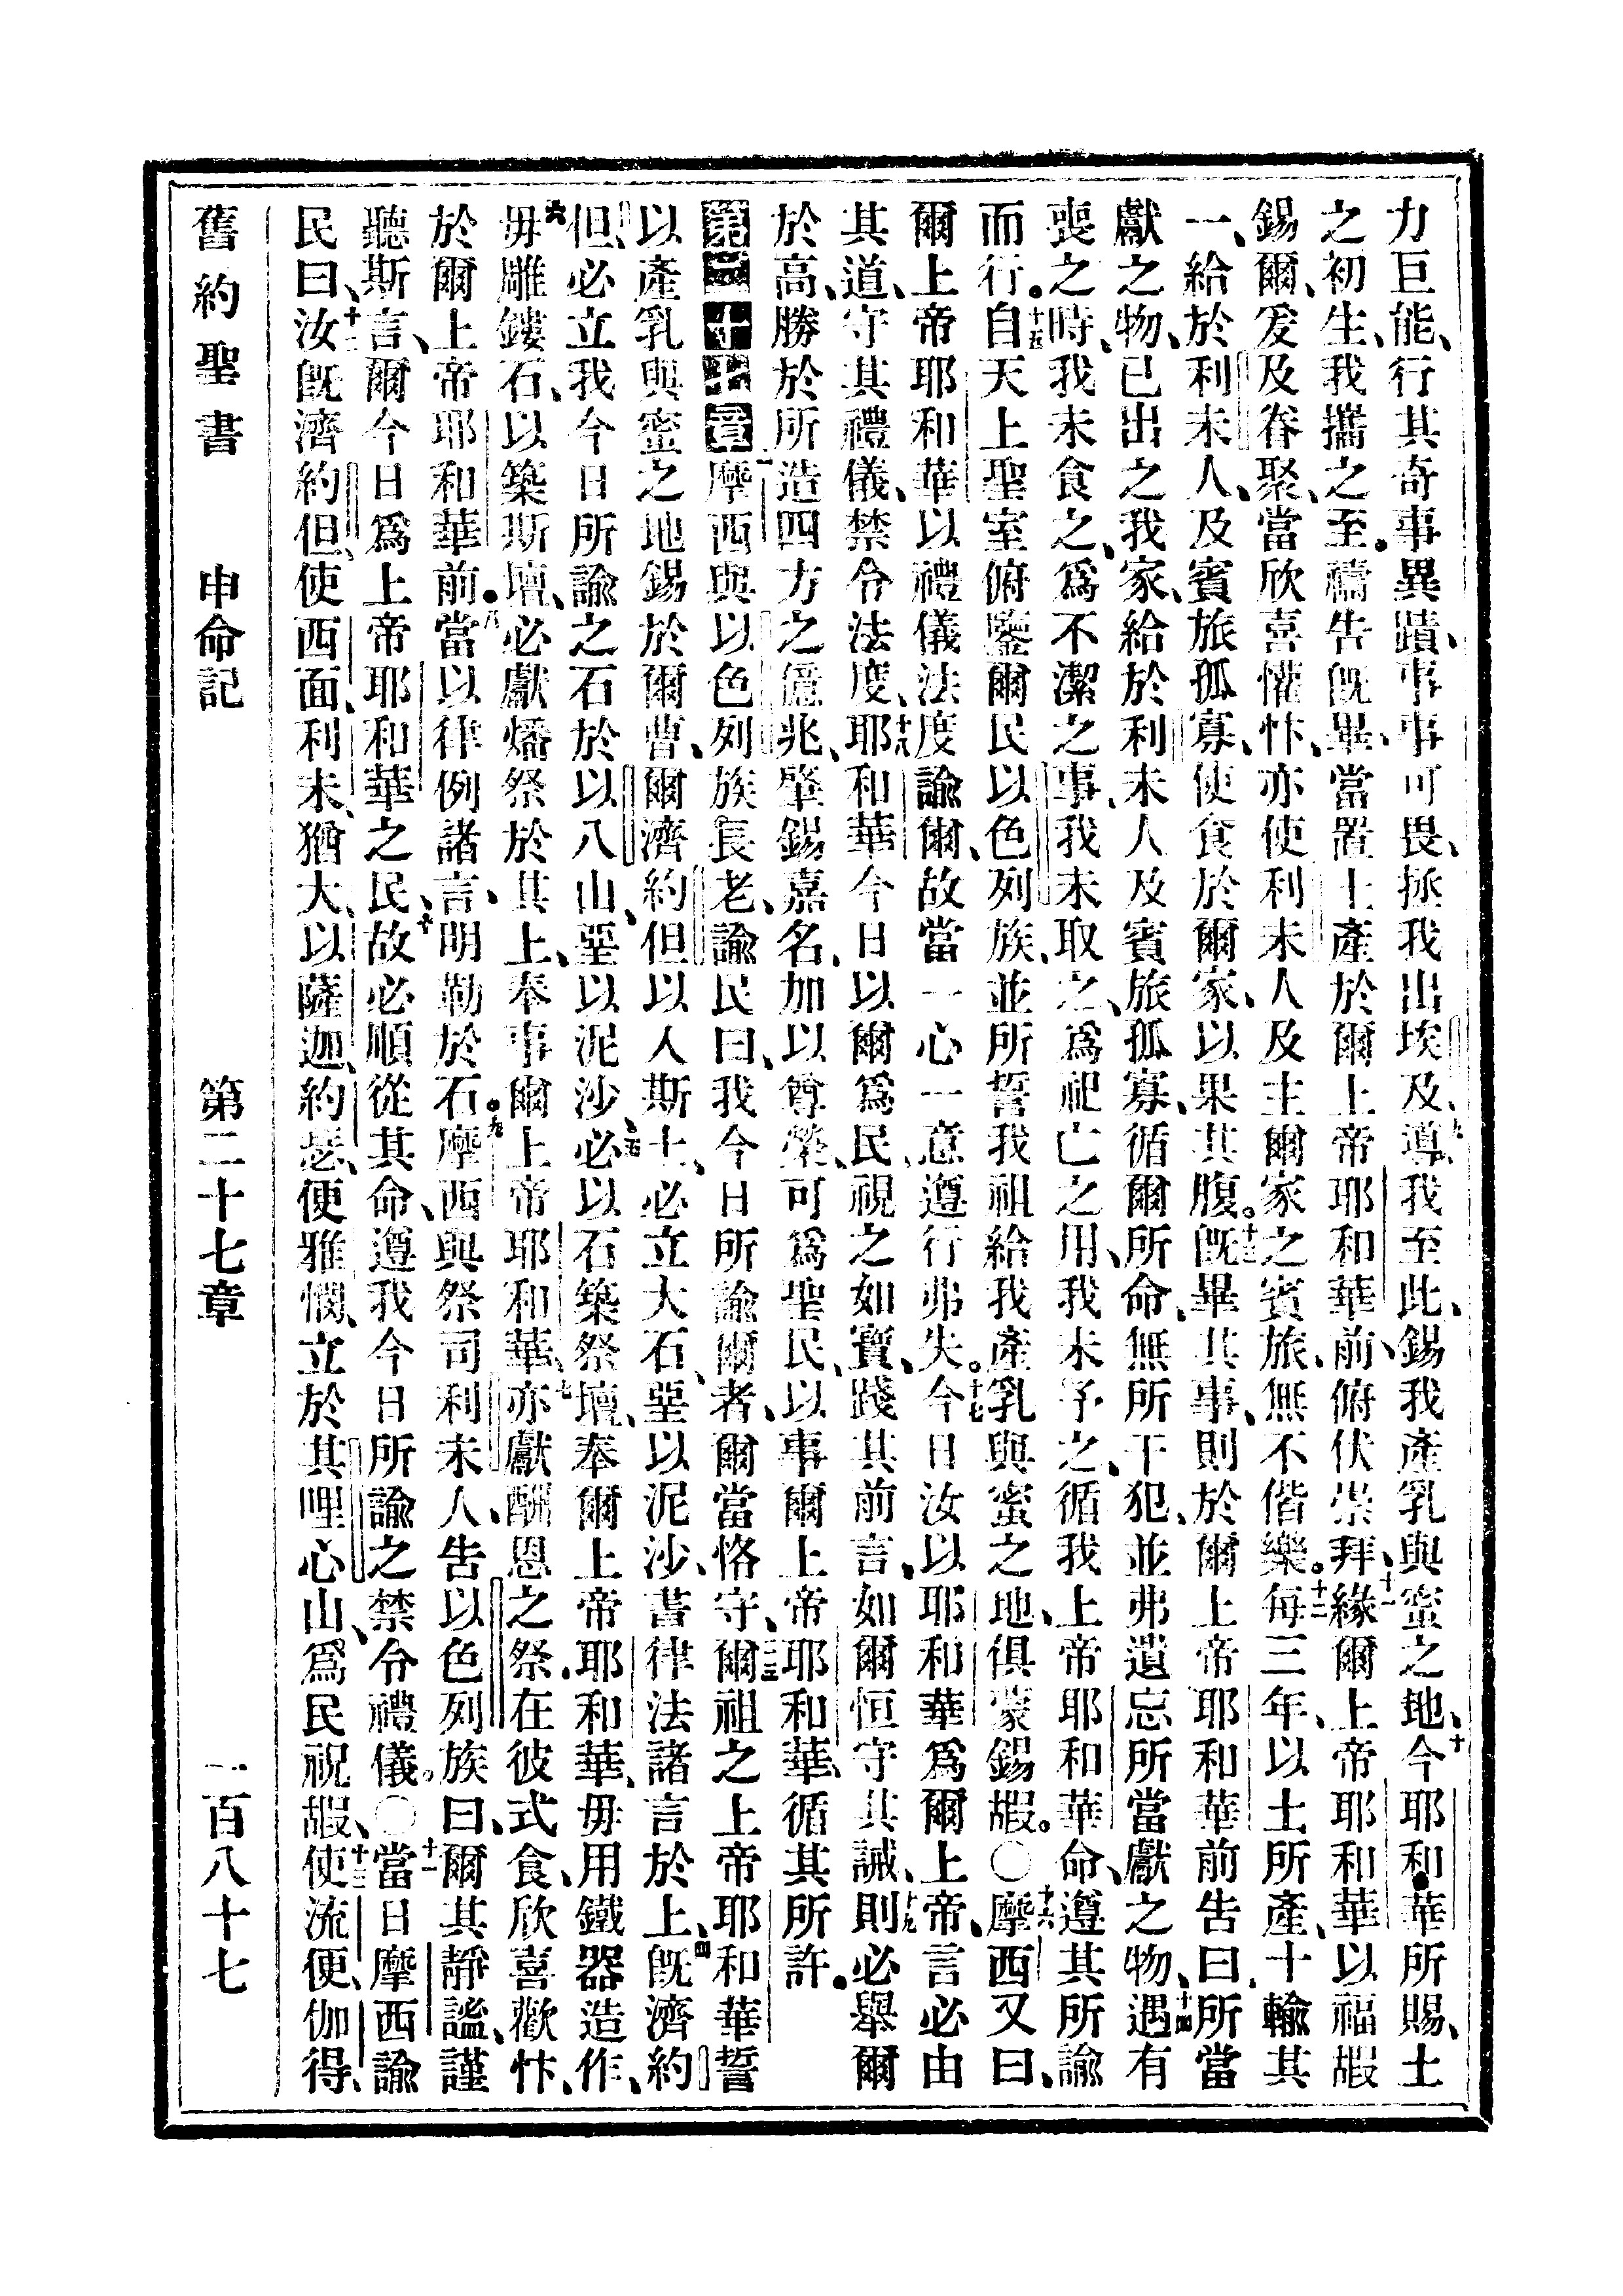 力巨能、行其奇事異蹟、事事可畏、拯我出埃及、九導我至此、錫我產乳與蜜之地、十今耶和華所賜、土
之初生、我攜之至。禱告旣畢、當置土產於爾上帝耶和華前、俯伏崇拜、十一緣爾上帝耶和華以福嘏
錫爾、爰及眷聚、當欣喜懽忭、亦使利未人及主爾家之賓旅、無不偕樂。十二每三年、以土所產、十輸其
一、給於利未人、及賓旅孤寡、使食於爾家、以果其腹。十三旣畢其事、則於爾上帝耶和華前告曰、所當
獻之物、已出之我家、給於利未人及賓旅孤寡、循爾所命、無所干犯、並弗遺忘所當獻之物、十四遇有
喪之時、我未食之、爲不潔之事、我未取之、爲祀亡之用、我未予之、循我上帝耶和華命、遵其所諭
而行。十五自天上聖室俯鑒爾民以色列族、並所誓我祖給我產乳與蜜之地、俱蒙錫嘏。〇十六摩西又曰、
爾上帝耶和華以禮儀法度諭爾、故當一心一意遵行弗失。十七今日汝以耶和華爲爾上帝、言必由
其道、守其禮儀、禁令法度、十八耶和華今日以爾爲民、視之如寶、踐其前言、如爾恒守其誡、十九則必舉爾
於高、勝於所造四方之億兆、肇錫嘉名、加以尊榮、可爲聖民、以事爾上帝耶和華、循其所許。
第二十七章一摩西與以色列族長老、諭民曰、我今日所諭爾者、爾當恪守、二三爾祖之上帝耶和華誓
以產乳與蜜之地錫於爾曹、爾濟約但以入斯土、必立大石、堊以泥沙、書律法諸言於上、四旣濟約
但、必立我今日所諭之石於以八山、堊以泥沙、五必以石築祭壇、奉爾上帝耶和華、毋用鐵器造作、
六毋雕鏤石、以築斯壇、必獻燔祭於其上、奉事爾上帝耶和華、七亦獻酬恩之祭。在彼式食、欣喜歡忭、
於爾上帝耶和華前。八當以律例諸言、明勒於石。九摩西與祭司利未人、告以色列族曰、爾其靜謐、謹
聽斯言、爾今日爲上帝耶和華之民、十故必順從其命、遵我今日所諭之禁令禮儀。〇十一當日摩西諭
民曰、十二汝旣濟約但、使西面、利未、猶大、以薩迦、約瑟、便雅憫、立於其哩心山、爲民祝嘏、十三使流便、伽得、
舊約聖書　申命記　第二十七章　一百八十七